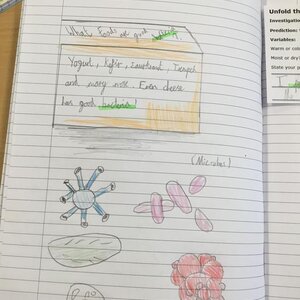 What Foods are good
Yogurt, kefir,
and many more. Even cheese
has good bacteria!
(Microbes)
Unfold th
Investigation
Prediction:
Variables:
Warm or col
Moist or dry
State your